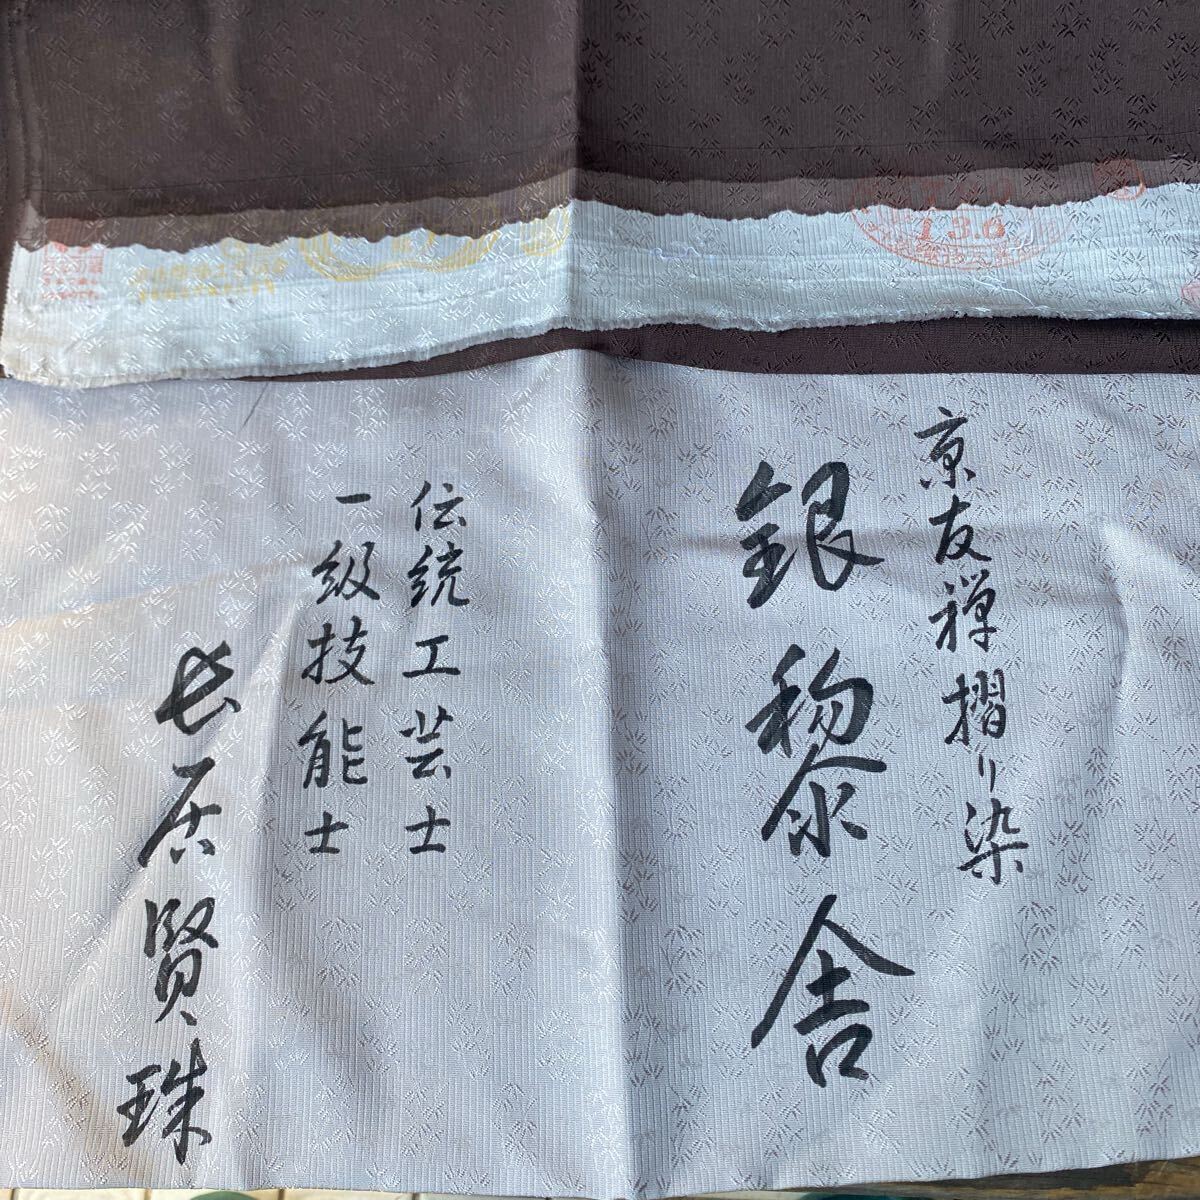 京友禅摺り染
銀黎舎
伝統工芸士
一級技能士
長居賢珠
13.6